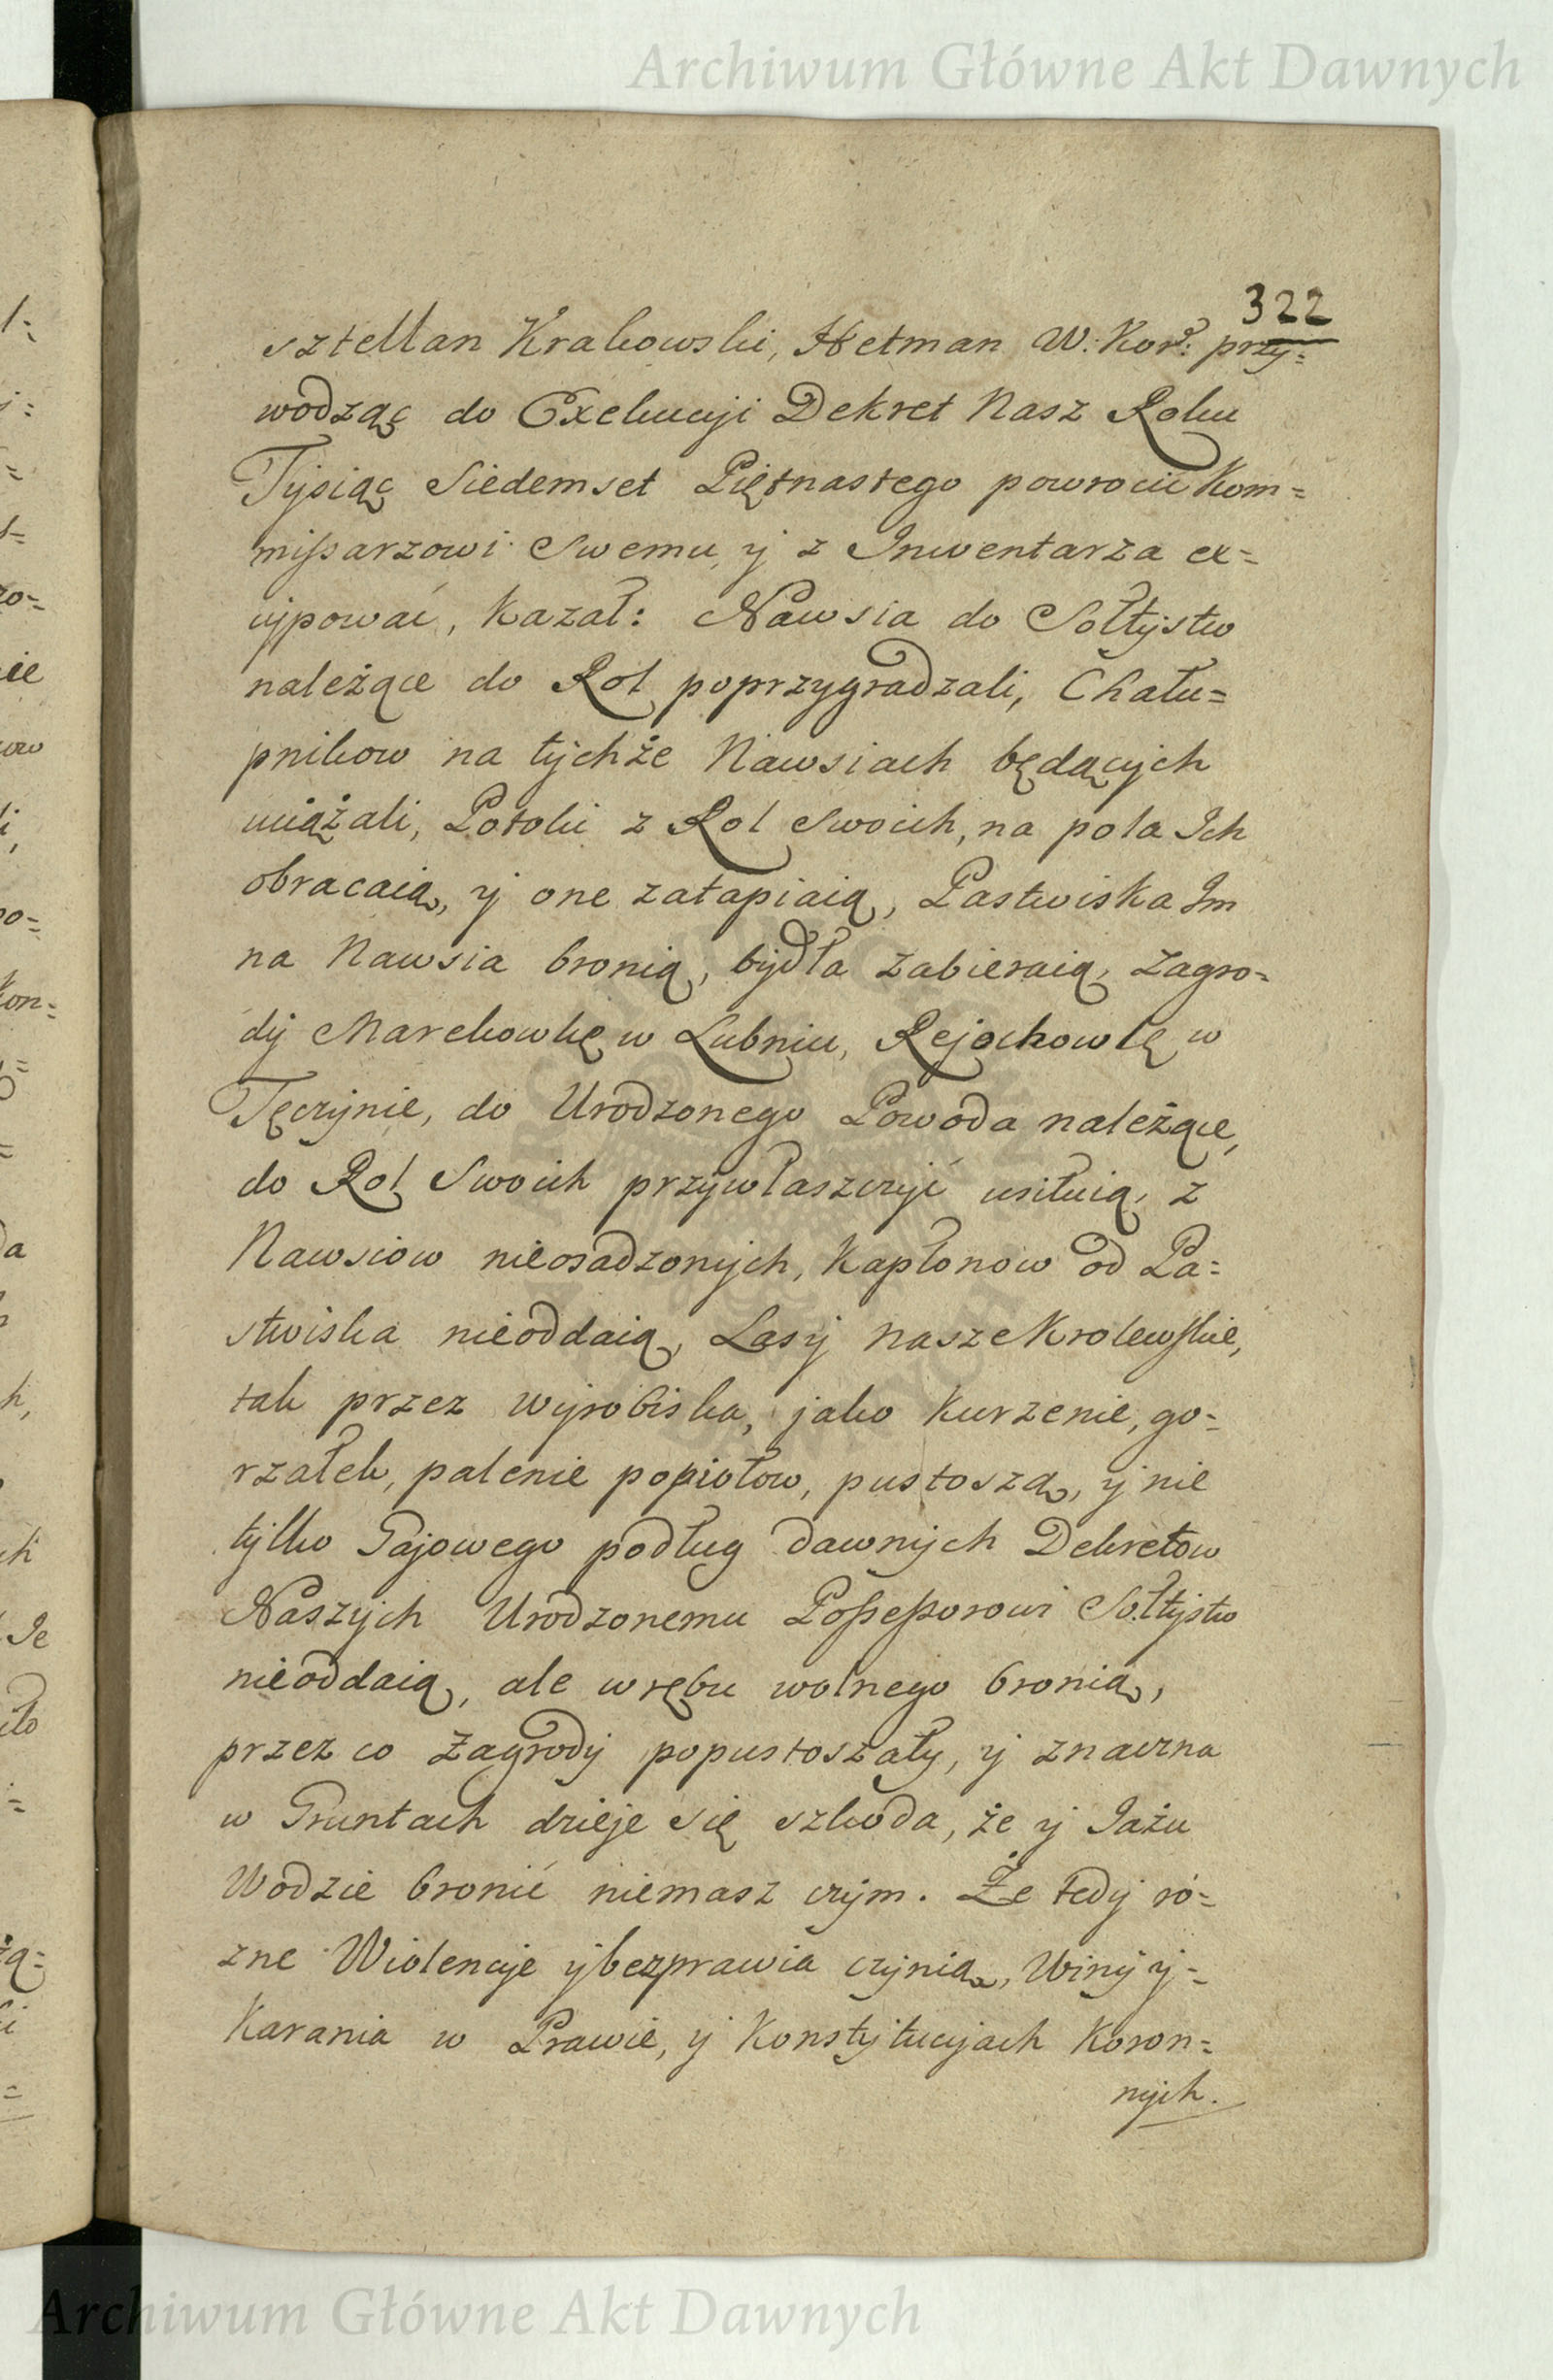 Archiwum Główne Akt Dawnych
322
sztellan Krakowski, Hetman W: Kor: przy=
wodząc do Exekucyi Dekret Nasz Roku
Tysiąc Siedemset Piętnastego powrocić Kom=
missarzowi Swemu, y z Inwentarza ex=
cypować, kazał: Nawsia do Sołtystw
należące do Rol poprzygradzali, Chału=
pnikow na tychże Nawsiach będących
uciążali, Potoki z Rol Swoich, na pola Ich
obracaią, y one zatapiaią, Pastwiska Im
na Nawsia bronią, bydła zabieraią, zagro=
dy Markowkę w Lubniu, Rejochowkę w
Tęczynie, do Urodzonego Powoda należące,
do Rol Swoich przywłaszczyć usiłuią, z
Nawsiow nieosadzonych, kapłonow od Pa=
stwiska nieoddaią, Lasy nasze Krolewskie,
tak przez wyrobiska, jako kurzenie, go=
rzałek, palenie popiołow, pustoszą, y nie
tylko Gajowego podług dawnych Dekretow
Naszych Urodzonemu Possessorowi Sołtystw
nieoddaią, ale wrębu wolnego bronią,
przez co zagrody popustoszały, y znaczna
w Gruntach dzieje się szkoda, że y Jazu
Wodzie bronić niemasz czym. Że tedy ró=
zne Wiolencje y bezprawia czynią, Winy y=
Karania w Prawie, y Konstytucyjach Koron=
nych.
Archiwum Główne Akt Dawnych